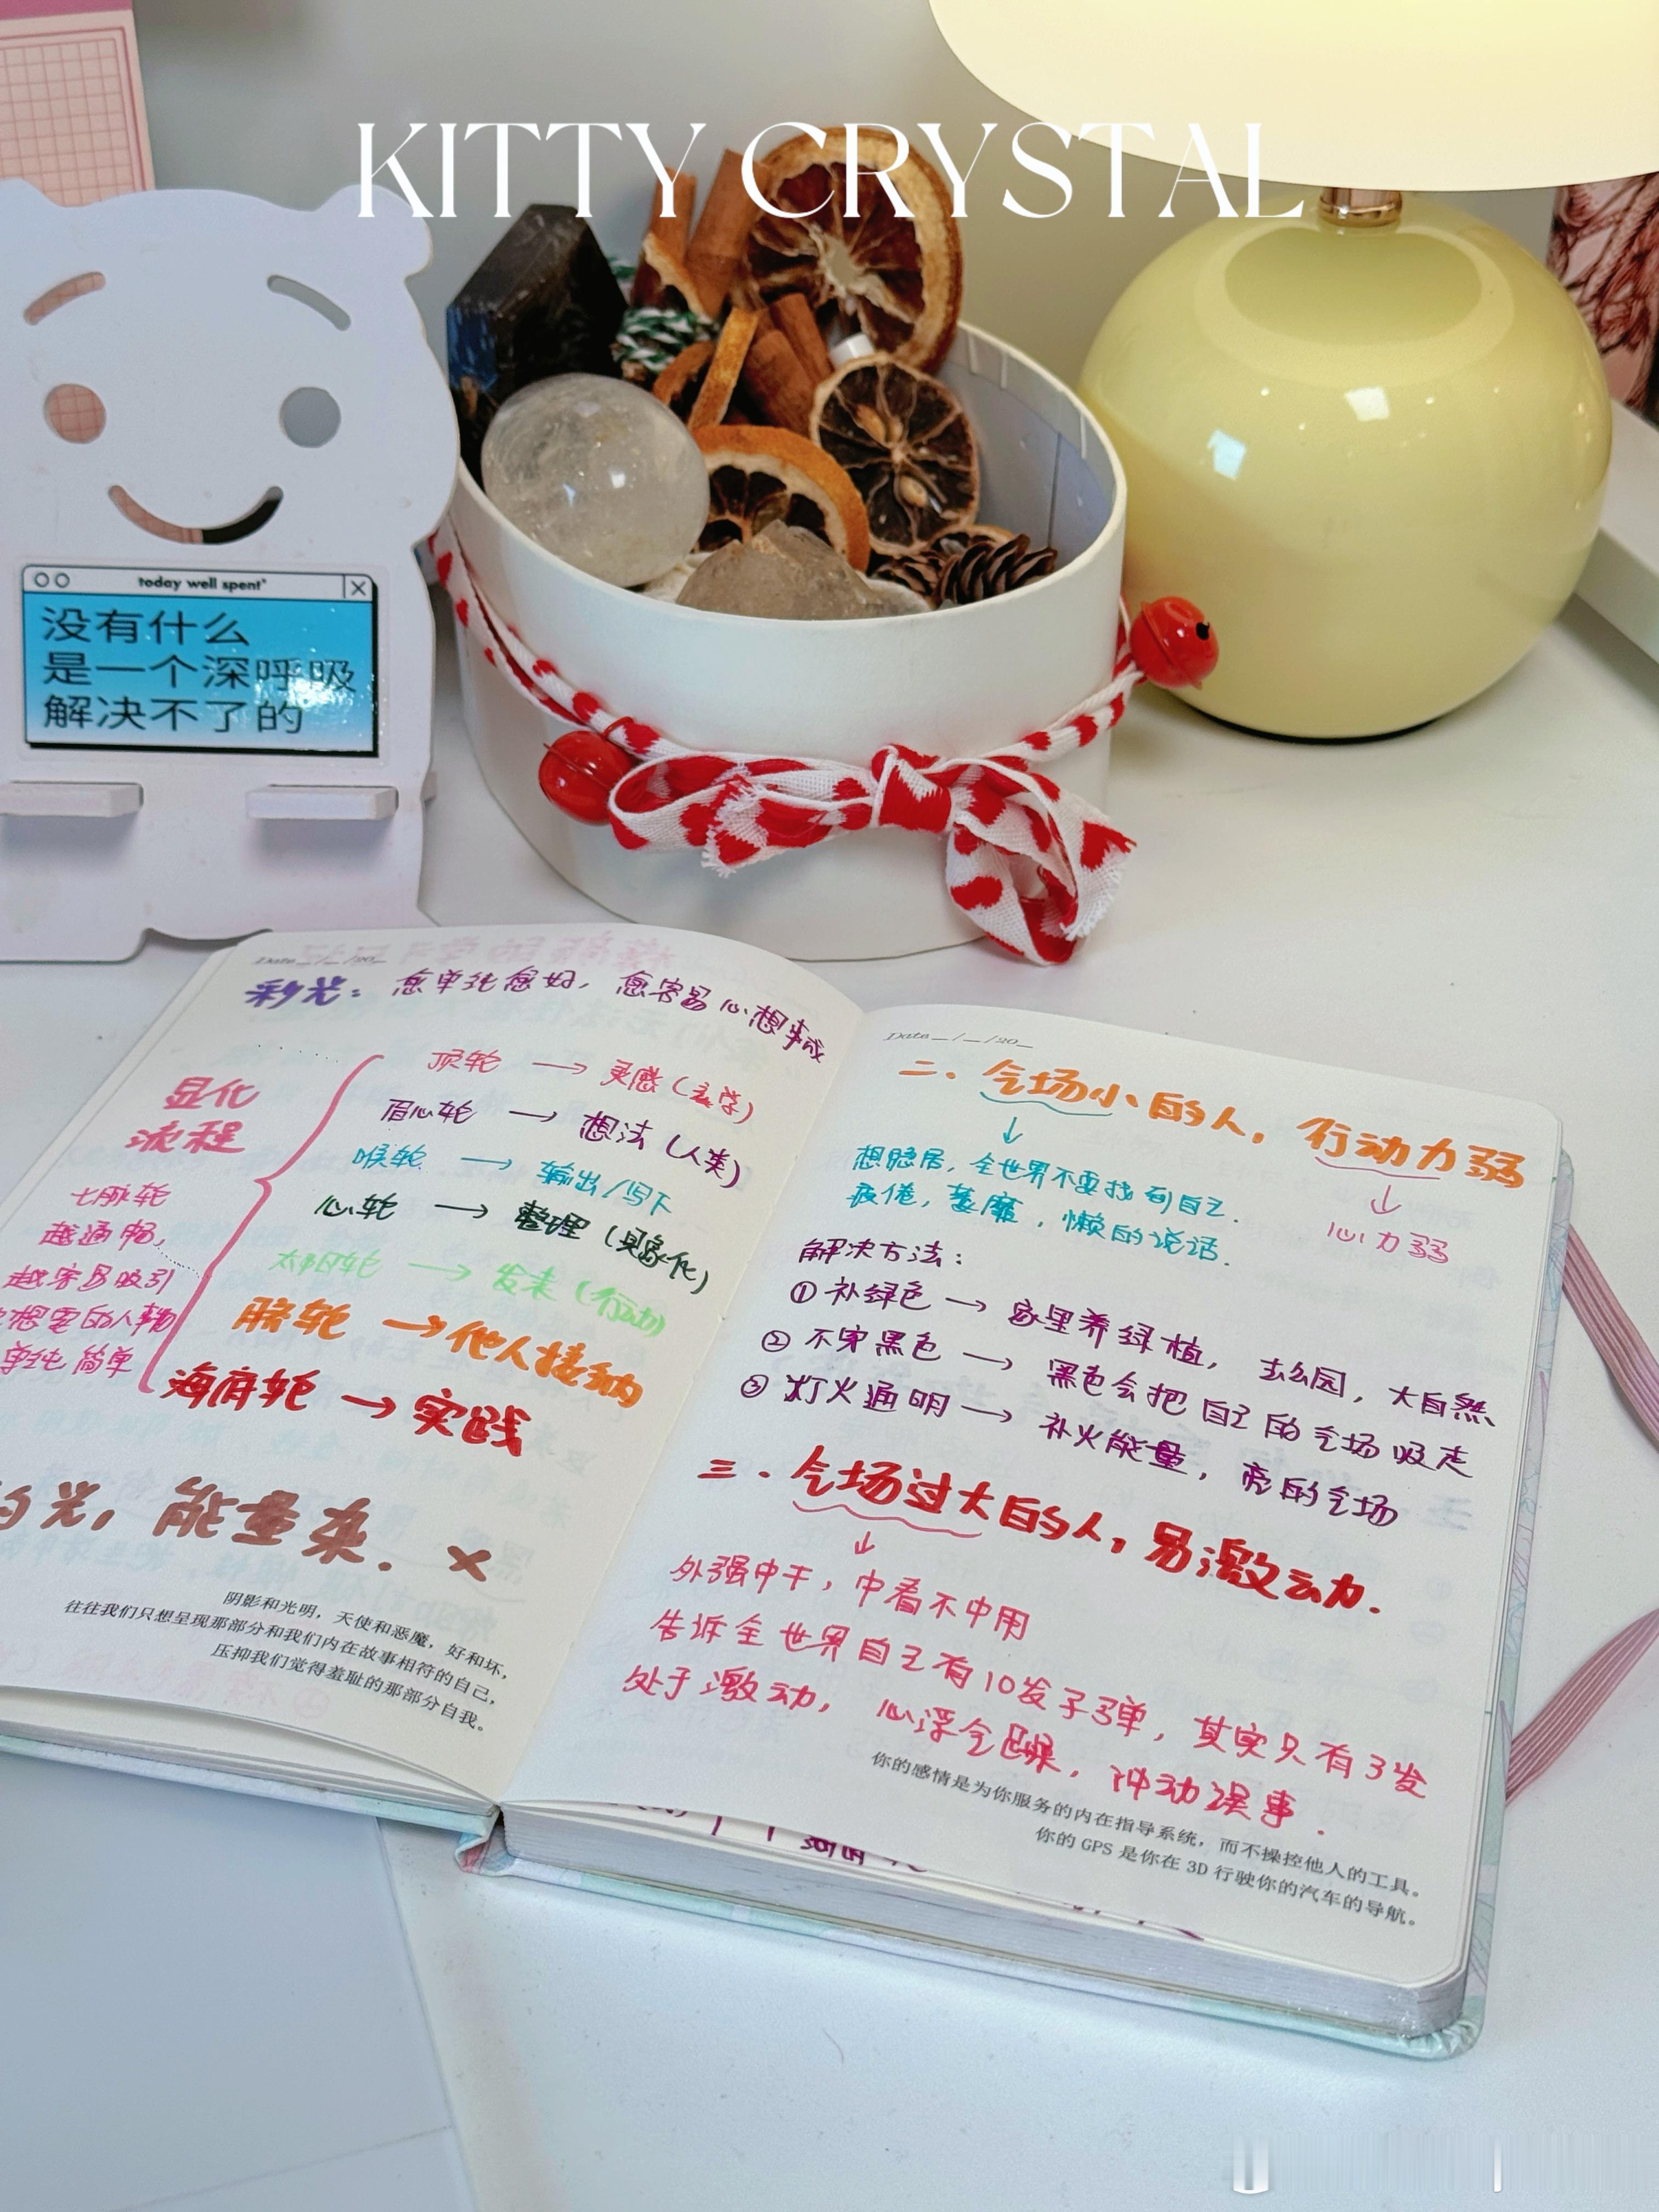 KITTY CRYSTAL
today well spent
没有什么
是一个深呼吸
解决不了的
Date __/__/20__
彩光：愈单纯愈好，愈容易心想事成
显化
流程
七脉轮
越通畅，
越容易吸引
想要的人事物
单纯 简单
顶轮 → 灵感（玄学）
眉心轮 → 想法（人类）
喉轮 → 输出/写下
心轮 → 整理（具象化）
太阳轮 → 发表（行动）
脐轮 → 他人接纳
海底轮 → 实践
的光，能量杂. ×
阴影和光明，天使和恶魔，好和坏，
往往我们只想呈现那部分和我们内在故事相符的自己，
压抑我们觉得羞耻的那部分自我。
Date __/__/20__
二、气场小的人，行动力弱
↓
想隐居，全世界不要找到自己.
疲倦，萎靡，懒的说话.
↓
心力弱
解决方法：
① 补绿色 → 家里养绿植，去公园，大自然
② 不穿黑色 → 黑色会把自己的气场吸走
③ 灯火通明 → 补火能量，亮的气场
三．气场过大的人，易激动.
↓
外强中干，中看不中用
告诉全世界自己有10发子弹，其实只有3发
处于激动，心浮气躁，冲动误事.
你的感情是为你服务的内在指导系统，而不操控他人的工具。
你的 GPS 是你在 3D 行驶你的汽车的导航。